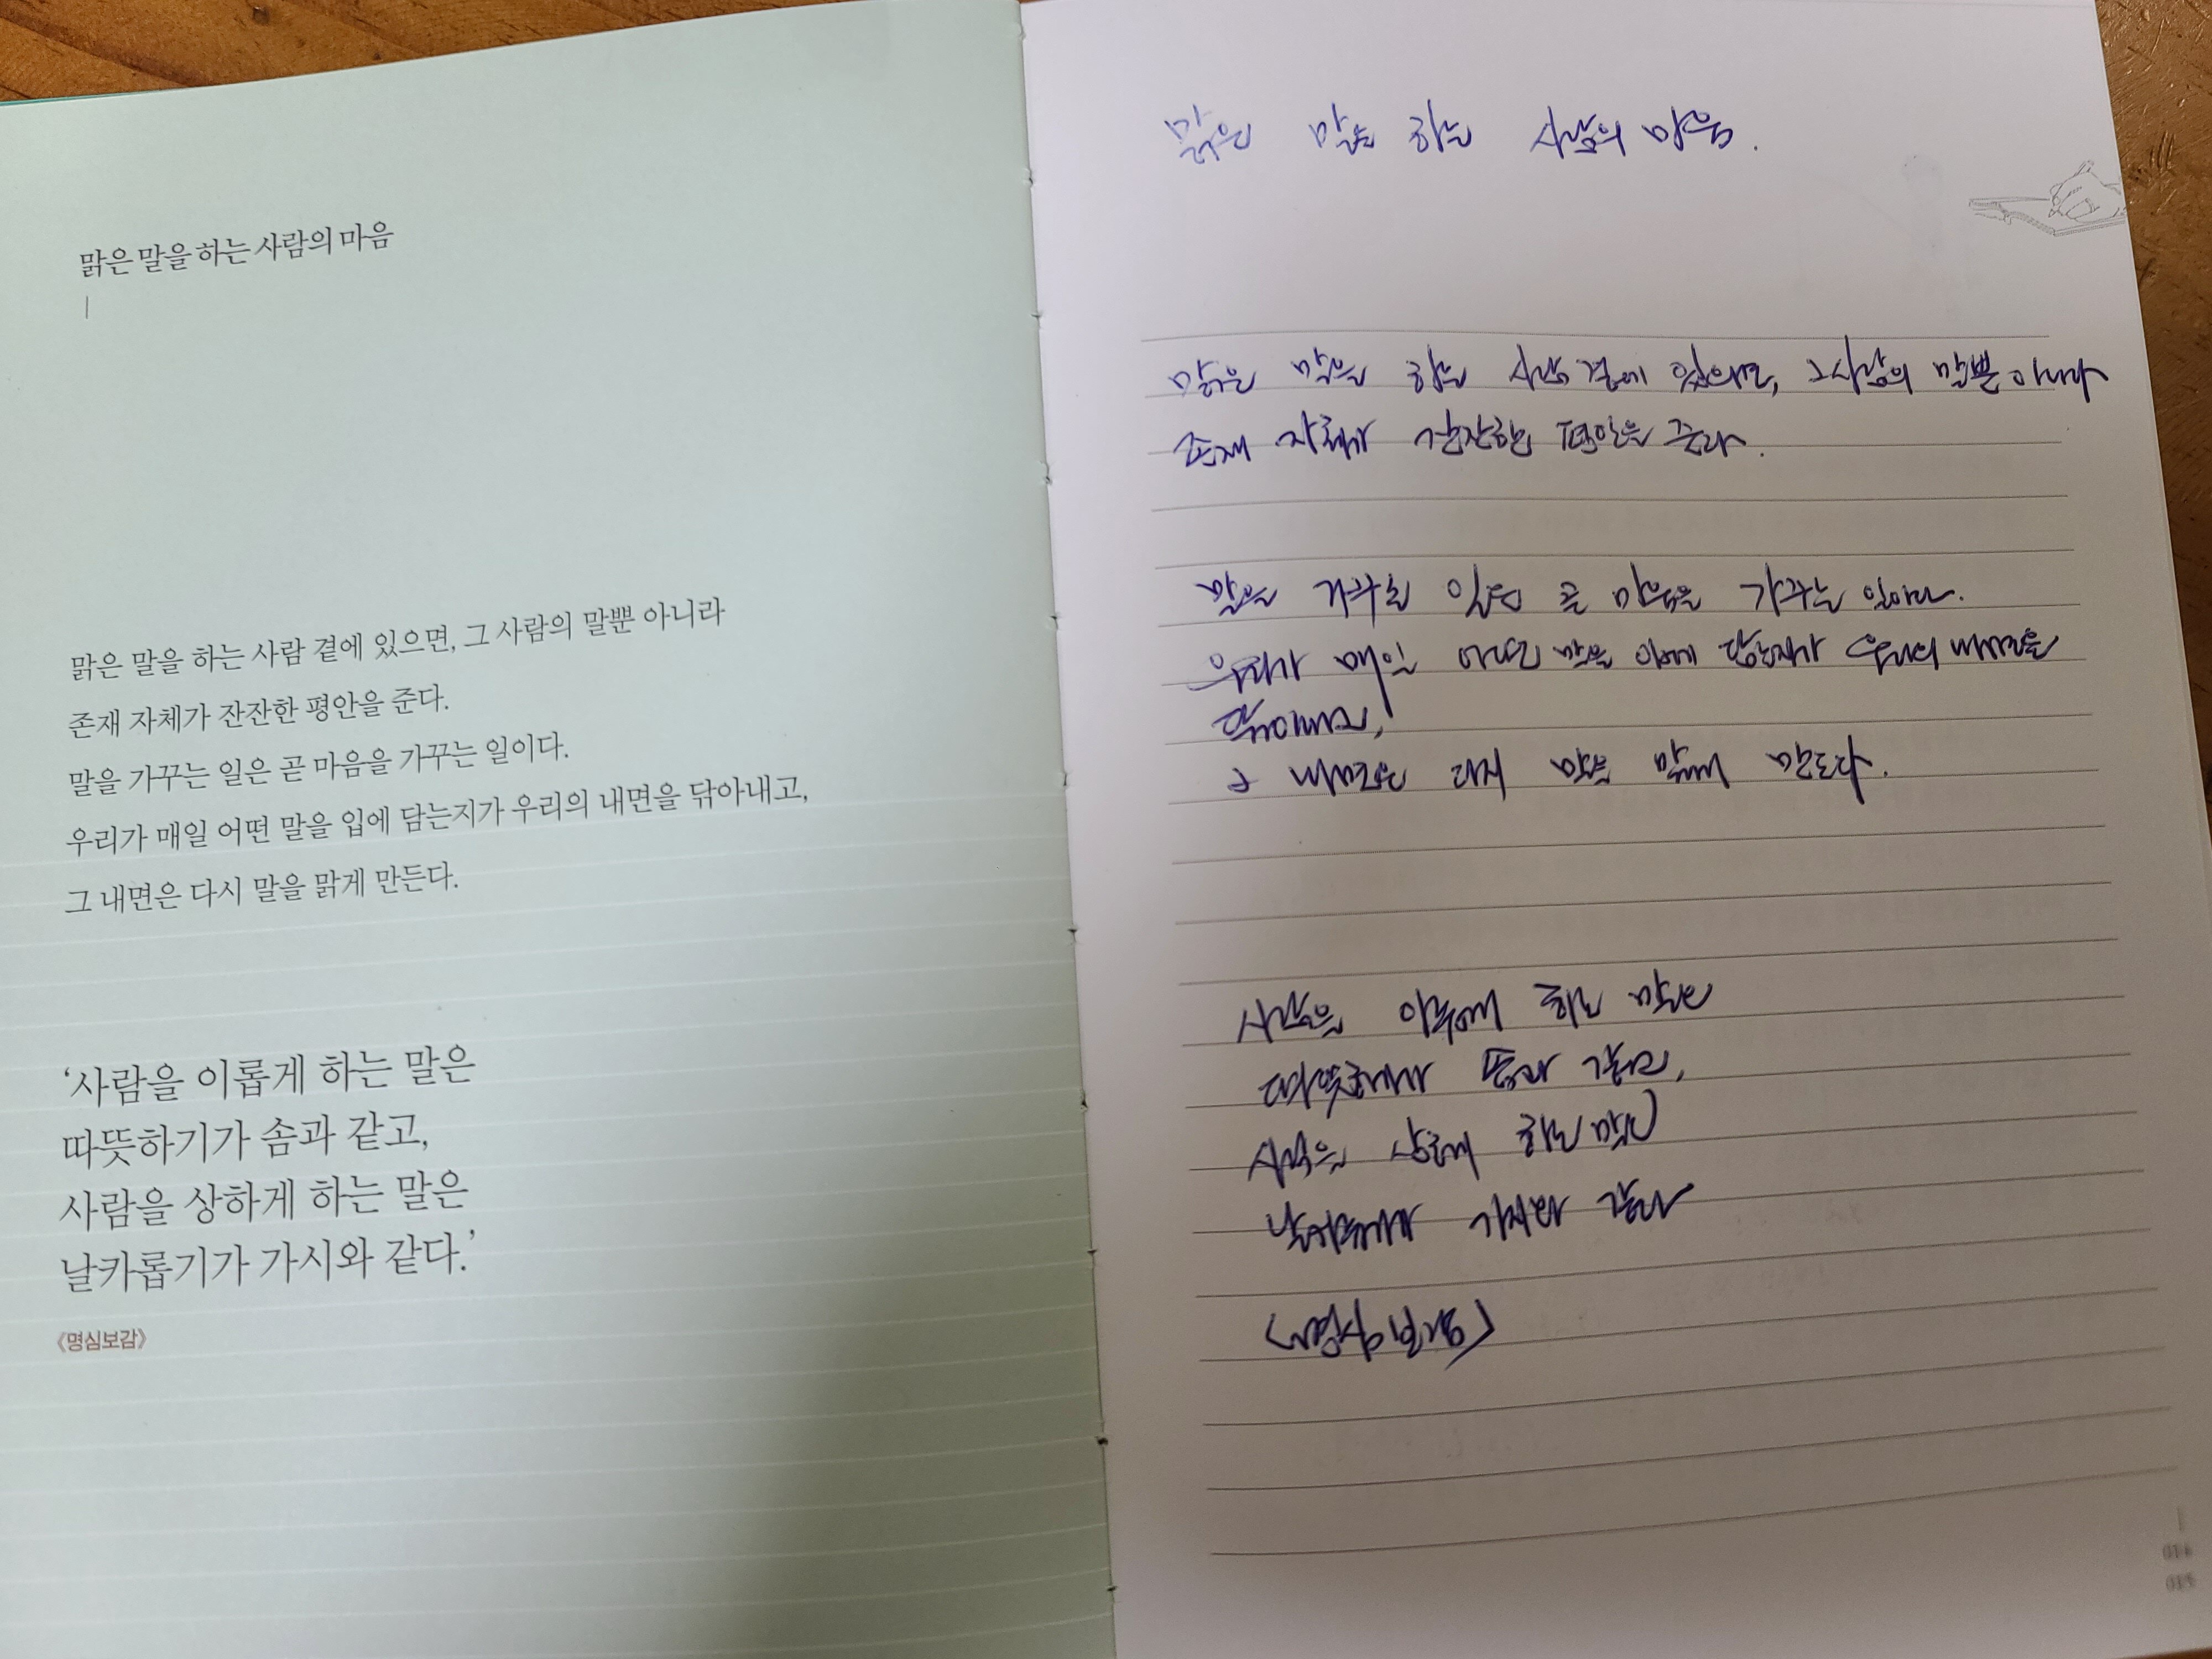 맑은 말을 하는 사람의 마음
맑은 말을 하는 사람 곁에 있으면, 그 사람의 말뿐 아니라
존재 자체가 잔잔한 평안을 준다.
말을 가꾸는 일은 곧 마음을 가꾸는 일이다.
우리가 매일 어떤 말을 입에 담는지가 우리의 내면을 닦아내고,
그 내면은 다시 말을 맑게 만든다.
‘사람을 이롭게 하는 말은
따뜻하기가 솜과 같고,
사람을 상하게 하는 말은
날카롭기가 가시와 같다.’
《명심보감》
맑은 말을 하는 사람의 마음.
맑은 말을 하는 사람 곁에 있으면, 그 사람의 말뿐 아니라
존재 자체가 잔잔한 평안을 준다.
말을 가꾸는 일은 곧 마음을 가꾸는 일이다.
우리가 매일 어떤 말을 입에 담는지가 우리의 내면을
닦아내고,
그 내면은 다시 말을 맑게 만든다.
사람을 이롭게 하는 말은
따뜻하기가 솜과 같고,
사람을 상하게 하는 말은
날카롭기가 가시와 같다
<명심보감>